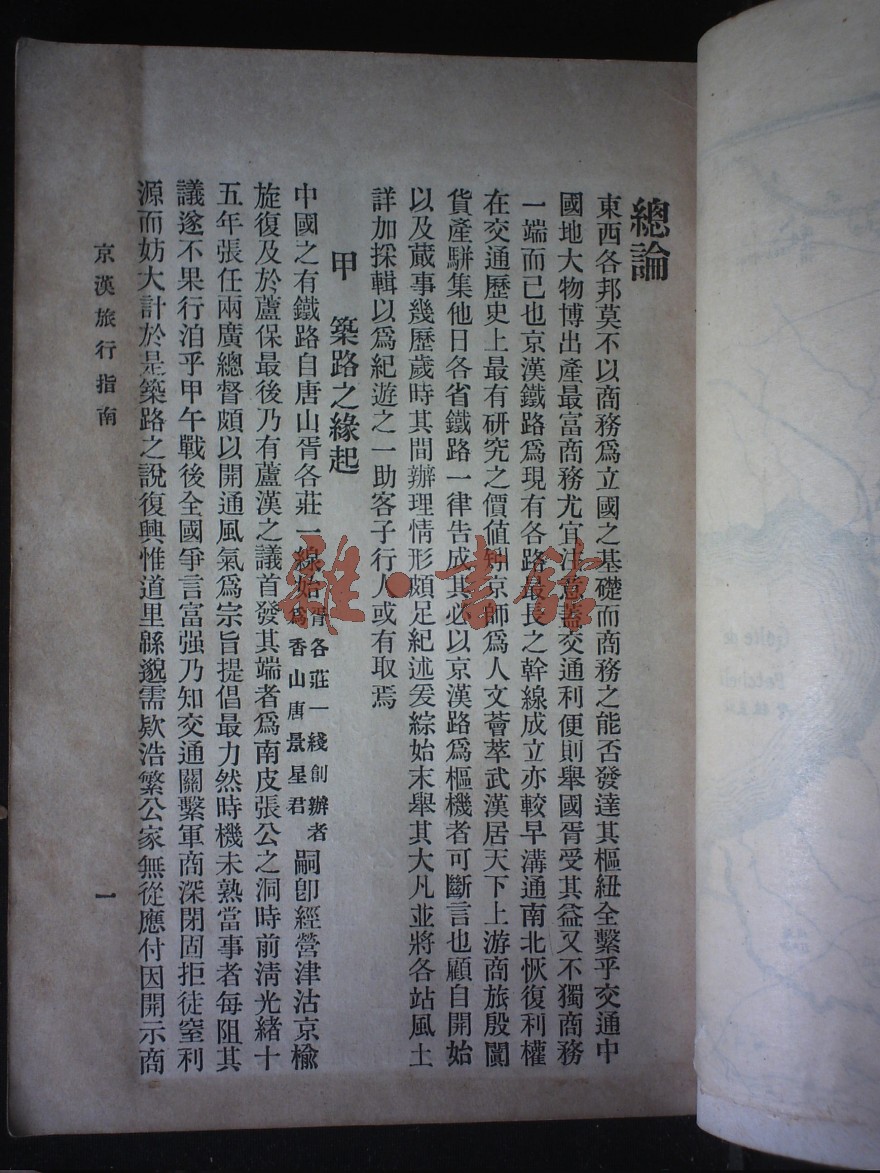 總論
東西各邦莫不以商務爲立國之基礎而商務之能否發達其樞紐全繫乎交通中
國地大物博出產最富商務尤宜注意蓋交通利便則舉國胥受其益又不獨商務
一端而已也京漢鐵路爲現有各路最長之幹線成立亦較早溝通南北恢復利權
在交通歷史上最有研究之價値矧京師爲人文薈萃武漢居天下上游商旅殷闐
貨產駢集他日各省鐵路一律告成其必以京漢路爲樞機者可斷言也顧自開始
以及蕆事幾歷歲時其間辦理情形頗足紀述爰綜始末舉其大凡並將各站風土
詳加採輯以爲紀遊之一助客子行人或有取焉
甲 築路之緣起
中國之有鐵路自唐山胥各莊一線始胥各莊一綫創辦者爲香山唐景星君嗣卽經營津沽京楡
旋復及於蘆保最後乃有蘆漢之議首發其端者爲南皮張公之洞時前淸光緒十
五年張任兩廣總督頗以開通風氣爲宗旨提倡最力然時機未熟當事者每阻其
議遂不果行洎乎甲午戰後全國爭言富强乃知交通關繫軍商深閉固拒徒窒利
源而妨大計於是築路之說復興惟道里緜邈需欵浩繁公家無從應付因開示商
京漢旅行指南
一
雜·書館
Golfe de
Petchili